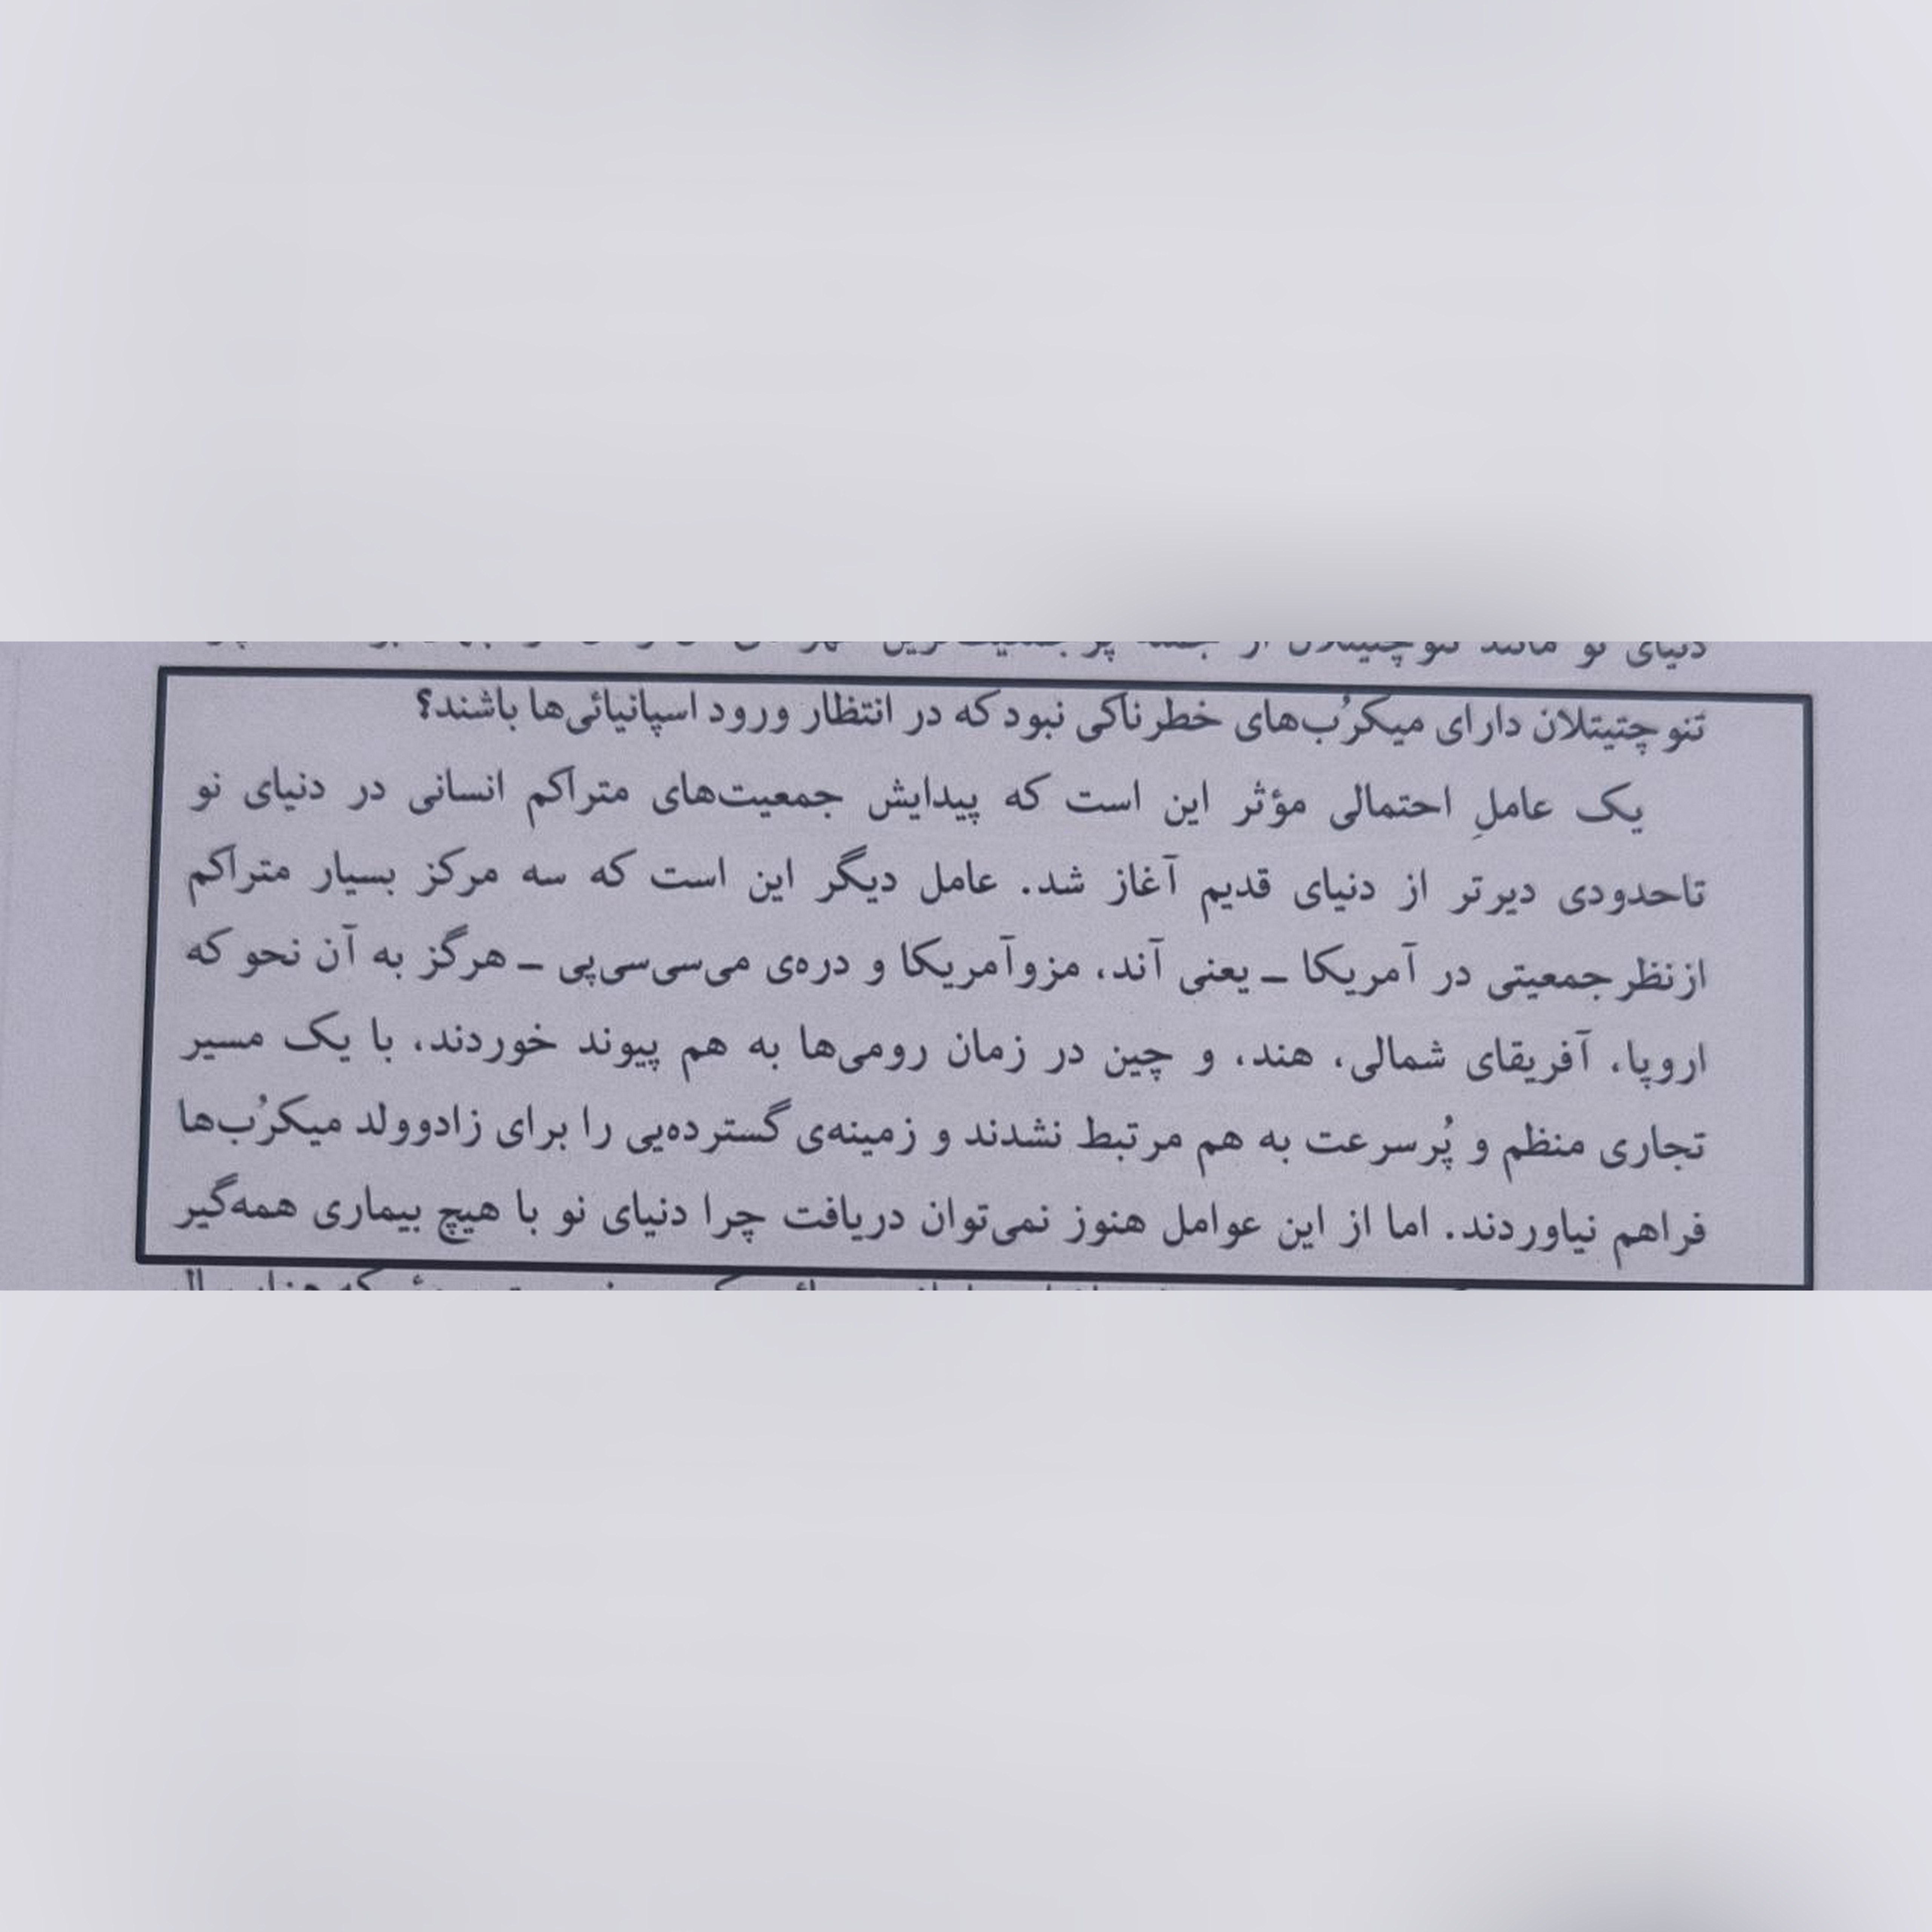 دنیای نو مانند تنوچتیتلان از جمله پرجمعیت‌ترین
تنوچتیتلان دارای میکرُب‌های خطرناکی نبود که در انتظار ورود اسپانیائی‌ها باشند؟
یک عاملِ احتمالی مؤثر این است که پیدایش جمعیت‌های متراکم انسانی در دنیای نو
تاحدودی دیرتر از دنیای قدیم آغاز شد. عامل دیگر این است که سه مرکز بسیار متراکم
ازنظر جمعیتی در آمریکا ــ یعنی آند، مزوآمریکا و دره‌ی می‌سی‌سی‌پی ــ هرگز به آن نحو که
اروپا، آفریقای شمالی، هند، و چین در زمان رومی‌ها به هم پیوند خوردند، با یک مسیر
تجاری منظم و پُرسرعت به هم مرتبط نشدند و زمینه‌ی گسترده‌یی را برای زادوولد میکرُب‌ها
فراهم نیاوردند. اما از این عوامل هنوز نمی‌توان دریافت چرا دنیای نو با هیچ بیماری همه‌گیر